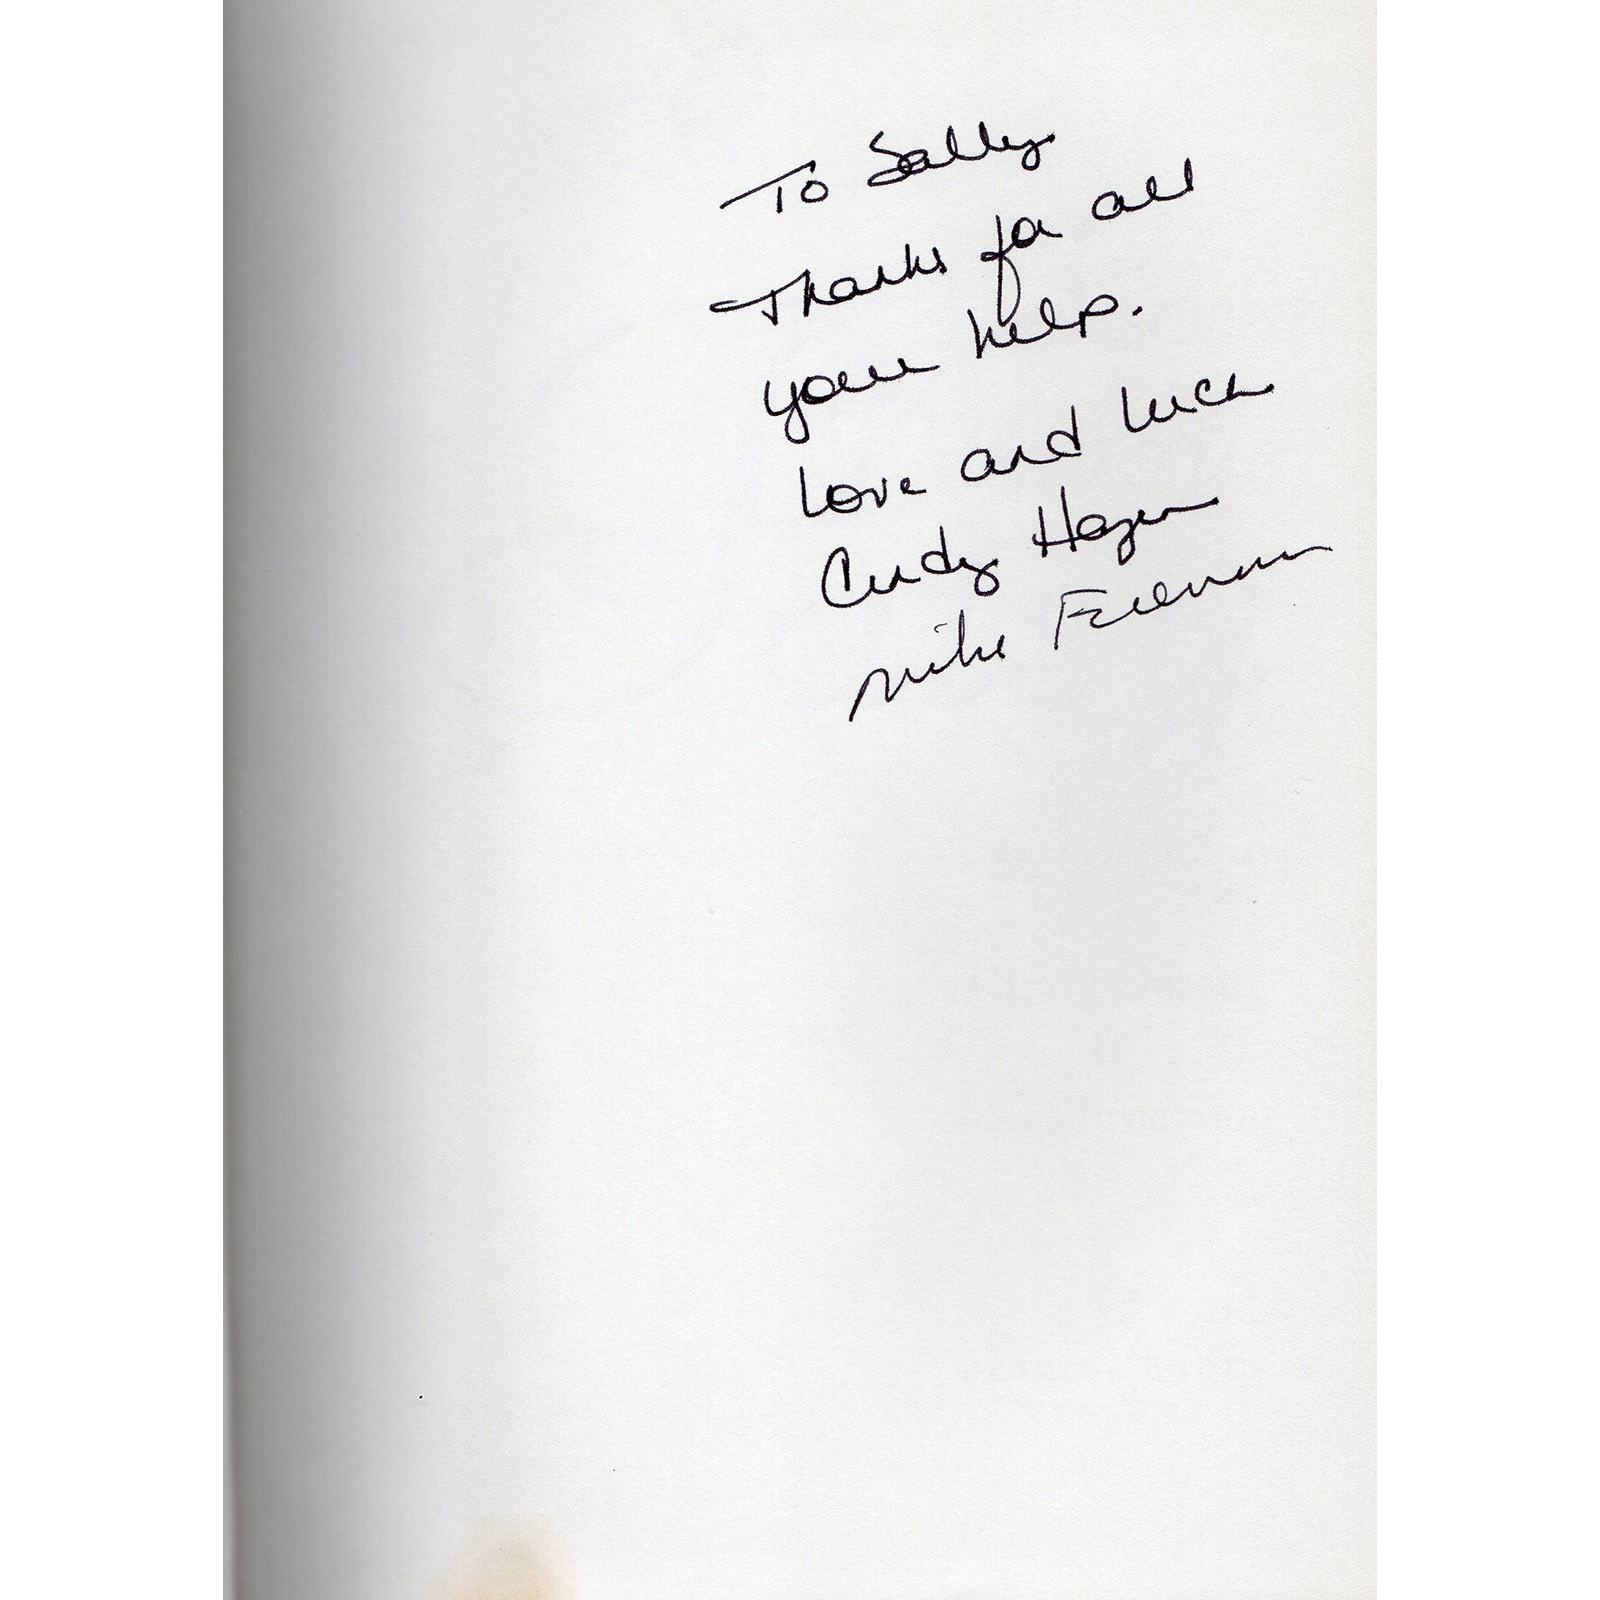 To Sally
Thanks for all
your help.
Love and luck
Cindy Hazen
Mike Freeman